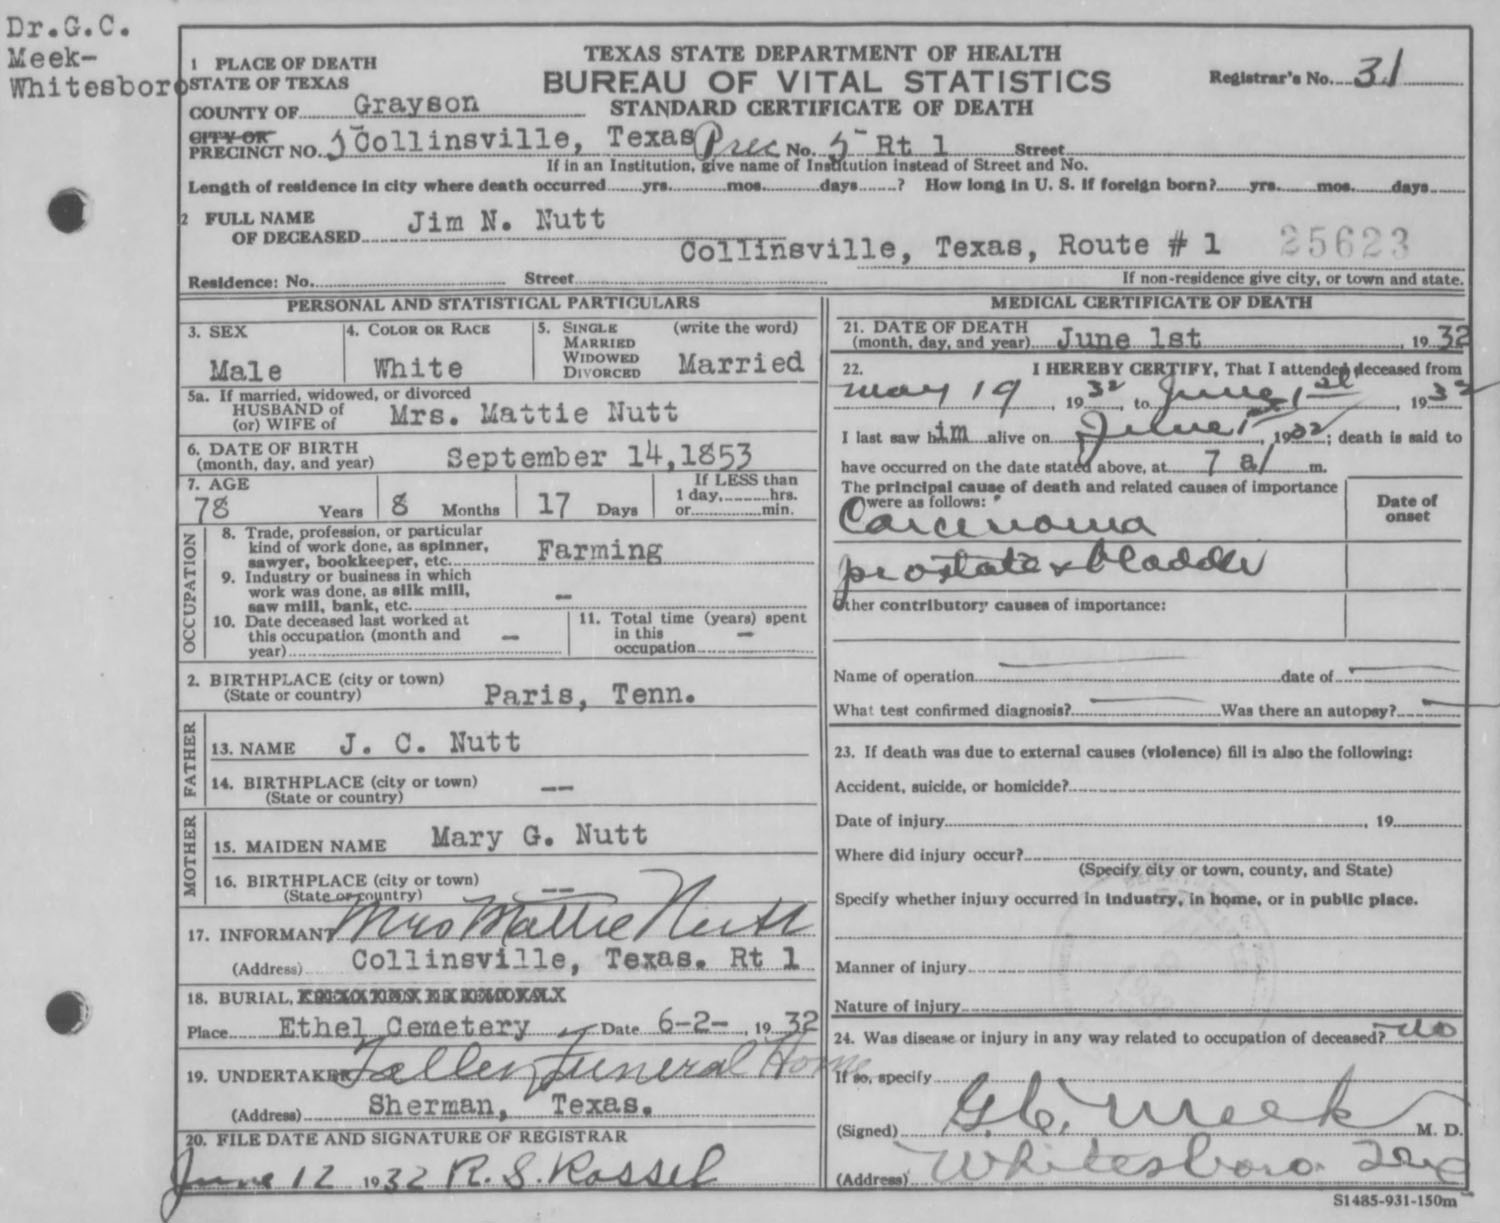 Dr.G.C.
Meek-
Whitesboro
TEXAS STATE DEPARTMENT OF HEALTH
BUREAU OF VITAL STATISTICS
STANDARD CERTIFICATE OF DEATH
Registrar's No. 31
1 PLACE OF DEATH
STATE OF TEXAS
COUNTY OF Grayson
CITY OR
PRECINCT NO. 5 Collinsville, Texas Prec No. 5 Rt 1 Street
If in an Institution, give name of Institution instead of Street and No.
Length of residence in city where death occurred yrs. mos. days ? How long in U. S. if foreign born? yrs. mos. days
2 FULL NAME
OF DECEASED Jim N. Nutt
Collinsville, Texas, Route # 1 25623
Residence: No. Street If non-residence give city, or town and state.
PERSONAL AND STATISTICAL PARTICULARS
3. SEX Male
4. COLOR OR RACE White
5. SINGLE MARRIED WIDOWED DIVORCED (write the word) Married
5a. If married, widowed, or divorced
HUSBAND of
(or) WIFE of Mrs. Mattie Nutt
6. DATE OF BIRTH
(month, day, and year) September 14,1853
7. AGE 78 Years 8 Months 17 Days If LESS than
1 day, hrs.
or min.
OCCUPATION
8. Trade, profession, or particular
kind of work done, as spinner,
sawyer, bookkeeper, etc. Farming
9. Industry or business in which
work was done, as silk mill,
saw mill, bank, etc. -
10. Date deceased last worked at
this occupation (month and
year) -
11. Total time (years) spent
in this
occupation -
2. BIRTHPLACE (city or town)
(State or country) Paris, Tenn.
FATHER
13. NAME J. C. Nutt
14. BIRTHPLACE (city or town)
(State or country) --
MOTHER
15. MAIDEN NAME Mary G. Nutt
16. BIRTHPLACE (city or town)
(State or country) --
17. INFORMANT Mrs Mattie Nutt
(Address) Collinsville, Texas. Rt 1
18. BURIAL,
Place Ethel Cemetery Date 6-2-, 1932
19. UNDERTAKER Funeral Home
(Address) Sherman, Texas.
20. FILE DATE AND SIGNATURE OF REGISTRAR
June 12 1932 R. S. Kassel
MEDICAL CERTIFICATE OF DEATH
21. DATE OF DEATH
(month, day, and year) June 1st, 1932
22. I HEREBY CERTIFY, That I attended deceased from
May 19, 1932, to June 1st, 1932
I last saw him alive on June 1, 1932; death is said to
have occurred on the date stated above, at 7 a m.
The principal cause of death and related causes of importance
were as follows:
Date of
onset
Carcinoma
prostate & bladder
Other contributory causes of importance:
Name of operation date of
What test confirmed diagnosis? Was there an autopsy?
23. If death was due to external causes (violence) fill in also the following:
Accident, suicide, or homicide?
Date of injury , 19
Where did injury occur?
(Specify city or town, county, and State)
Specify whether injury occurred in industry, in home, or in public place.
Manner of injury
Nature of injury
24. Was disease or injury in any way related to occupation of deceased? No
If so, specify
(Signed) G. C. Meek M. D.
(Address) Whitesboro Tex
S1485-931-150m